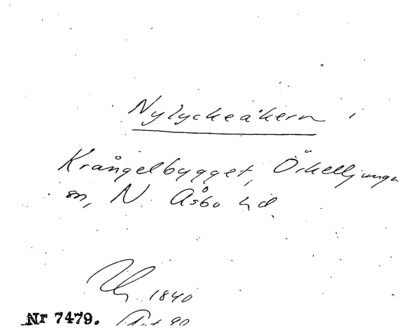 Nylyckeåkern i
Krångelbygget, Örkelljunga
sn, N. Åsbo hd.
1840
Nr 7479. Akt 90